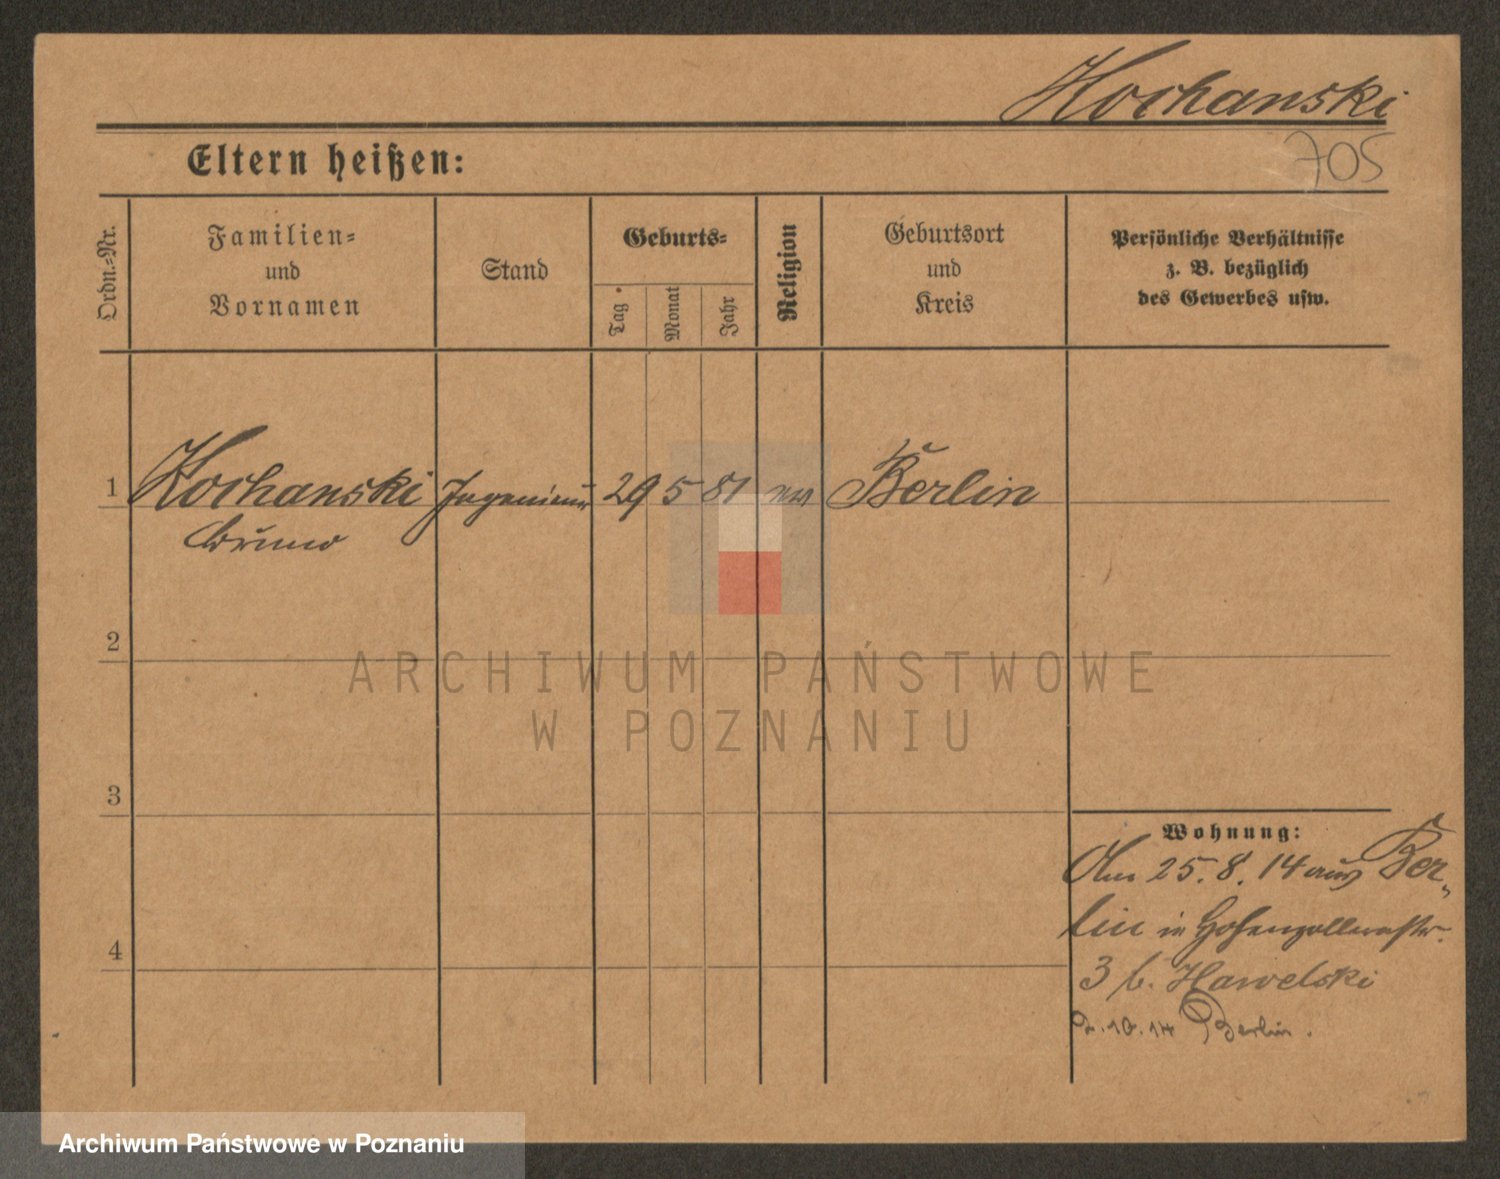 Kochanski
705
Eltern heißen:
Ordn.=Nr.
Familien=
und
Vornamen
Stand
Geburts=
Tag
Monat
Jahr
Religion
Geburtsort
und
Kreis
Persönliche Verhältnisse
z. B. bezüglich
des Gewerbes usw.
1 Kochanski Ingenieur 29 5 81 ev Berlin
Bruno
2
3
4
Wohnung:
Am 25. 8. 14 aus Ber-
lin in Hohenzollernstr.
3 b. Hawelski
2. 10. 14 Berlin.
ARCHIWUM PAŃSTWOWE
W POZNANIU
Archiwum Państwowe w Poznaniu